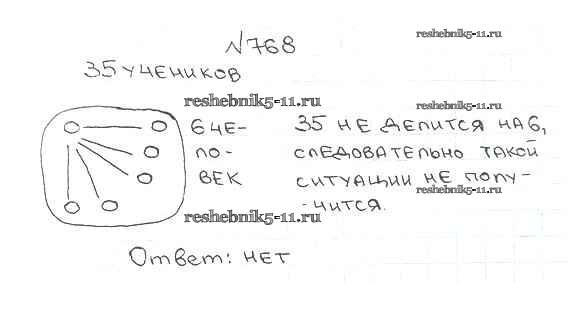 №768
reshebnik5-11.ru
35 учеников
reshebnik5-11.ru
reshebnik5-11.ru
6 че-
ло-
век
35 не делится на 6,
следовательно такой
ситуации не полу-
-чится.
reshebnik5-11.ru
reshebnik5-11.ru
Ответ: нет